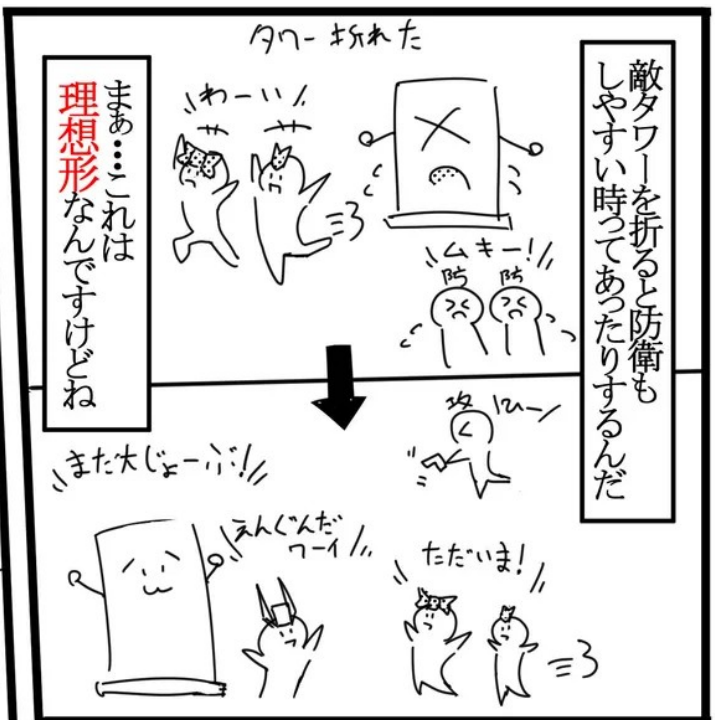 敵タワーを折ると防衛も
しやすい時ってあったりするんだ
タワー折れた
わーい
ムキー!
防
防
まぁ…これは
理想形なんですけどね
攻
ひー
まだ大じょーぶ!
えんぐんだ
ワーイ
ただいま!